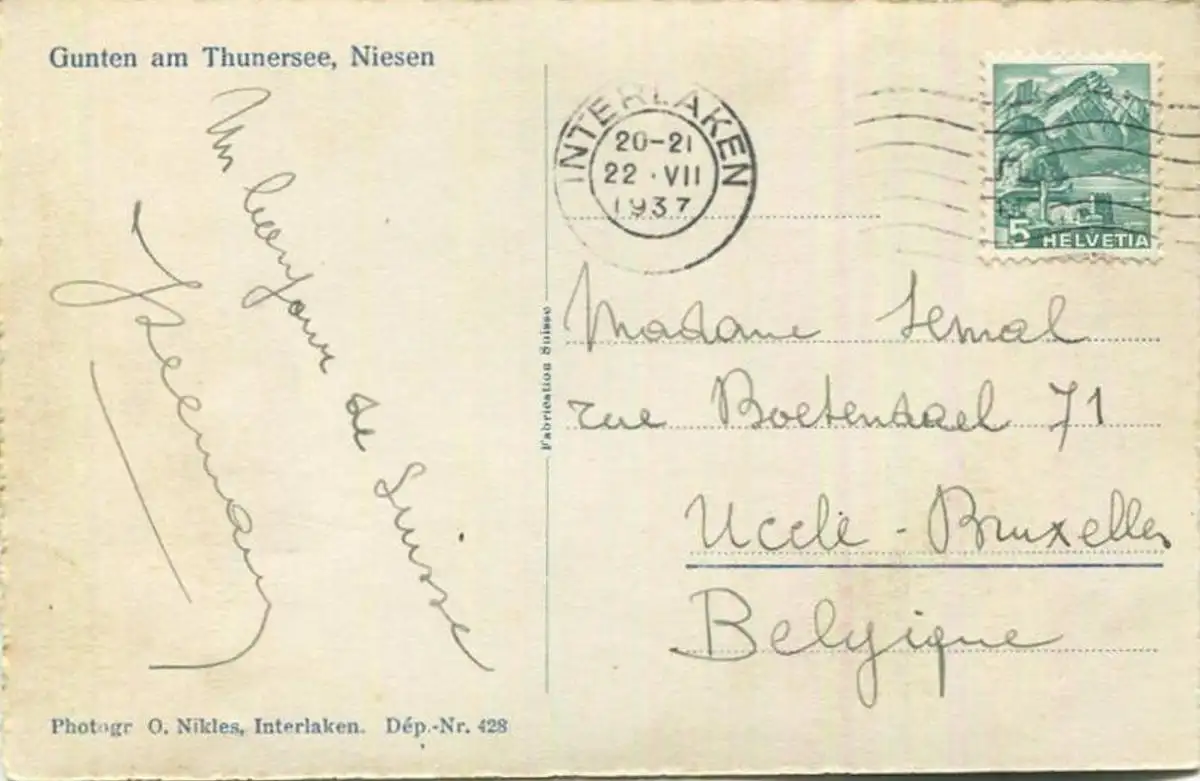 Gunten am Thunersee, Niesen
Un bonjour de Suisse
Fabrication Suisse
INTERLAKEN
20-21
22·VII
1937
5 HELVETIA
Madame Semal
rue Boetendael 71
Uccle - Bruxelles
Belgique
Photogr O. Nikles, Interlaken. Dép.-Nr. 428